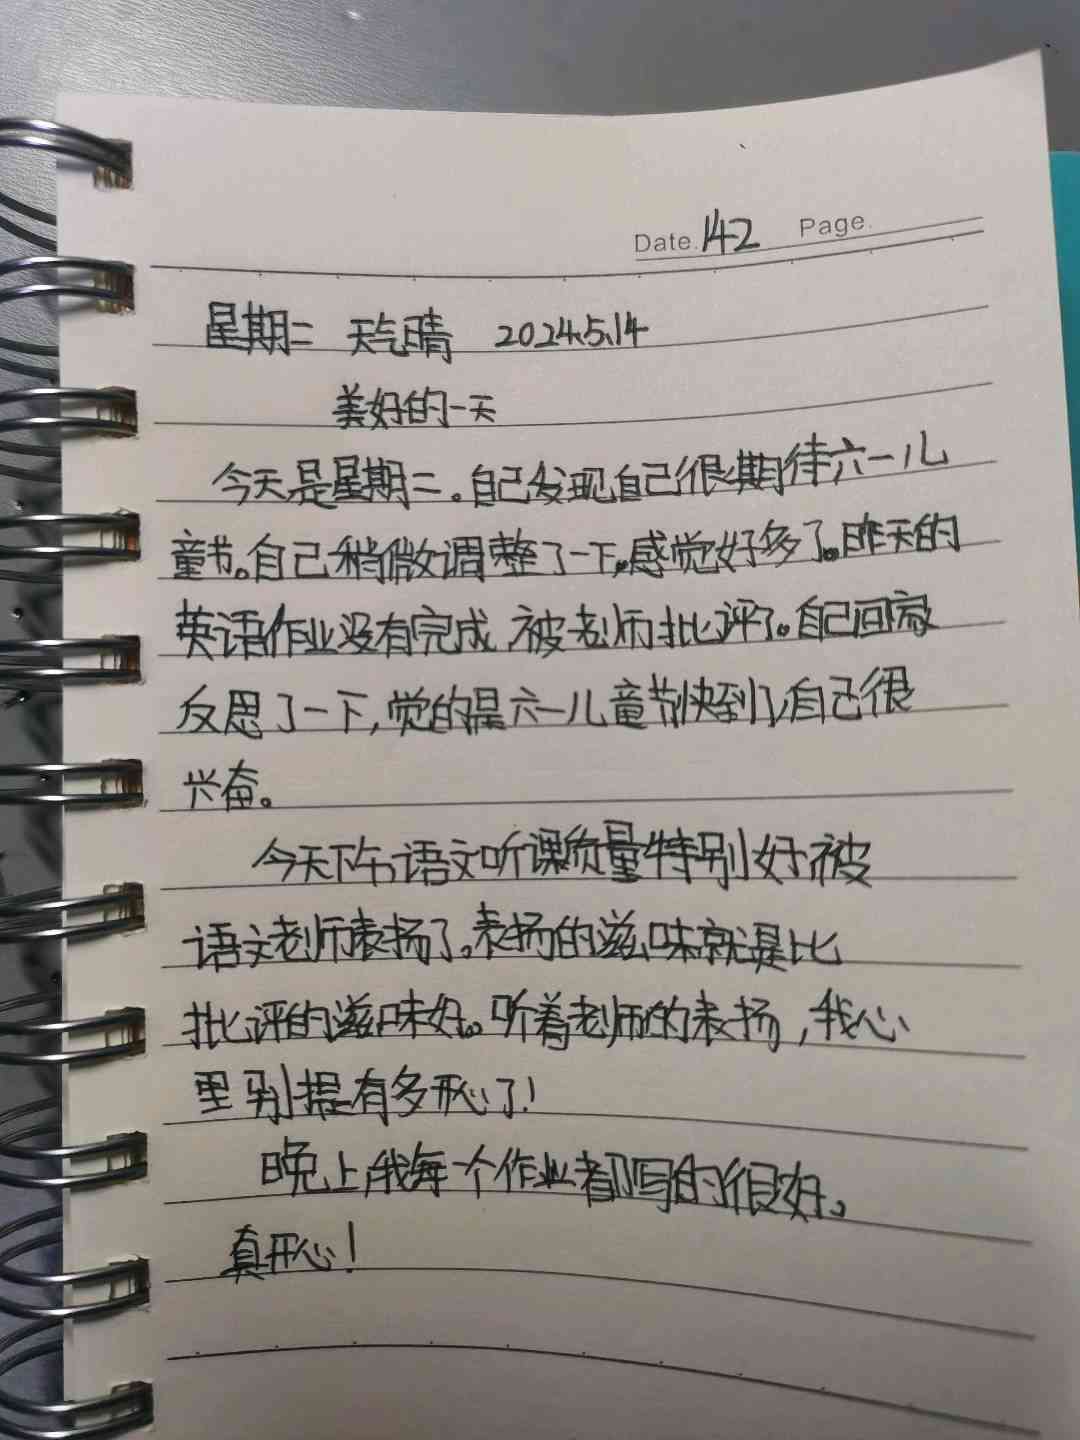 Date. 142 Page.
星期二 天气晴 2024.5.14
美好的一天
今天是星期二。自己发现自己很期待六一儿
童节。自己稍微调整了一下。感觉好多了。昨天的
英语作业没有完成,被老师批评了。自己回家
反思了一下,觉的是六一儿童节快到了,自己很
兴奋。
今天下午语文听课质量特别好被
语文老师表扬了。表扬的滋味就是比
批评的滋味好。听着老师的表扬,我心
里别提有多开心了!
晚上,我每一个作业都写的很好。
真开心!